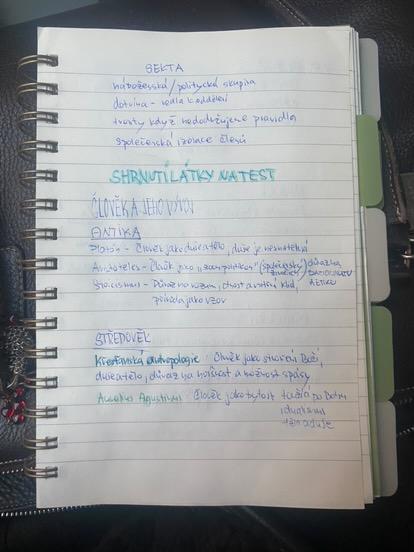 SEKTA
náboženská/politická skupina
doktrína - vedla k oddělení
tresty když nedodržujeme pravidla
společenská izolace členů
SHRNUTÍ LÁTKY NA TEST
ČLOVĚK A JEHO VÝVOJ
ANTIKA
Platón - Člověk jako duše a tělo, duše je nesmrtelná
Aristoteles - Člověk jako "zoon politikon" (společenský živočich) důraz na RACIONALITU A ETIKU
Stoicismus - Důraz na rozum, ctnost a vnitřní klid,
příroda jako vzor
STŘEDOVĚK
Křesťanská antropologie: Člověk jako stvoření Boží,
duše a tělo, důraz na hříšnost a možnost spásy
Aurelius Agustinus: Člověk jako bytost toužící po Bohu
dualismus
těla a duše